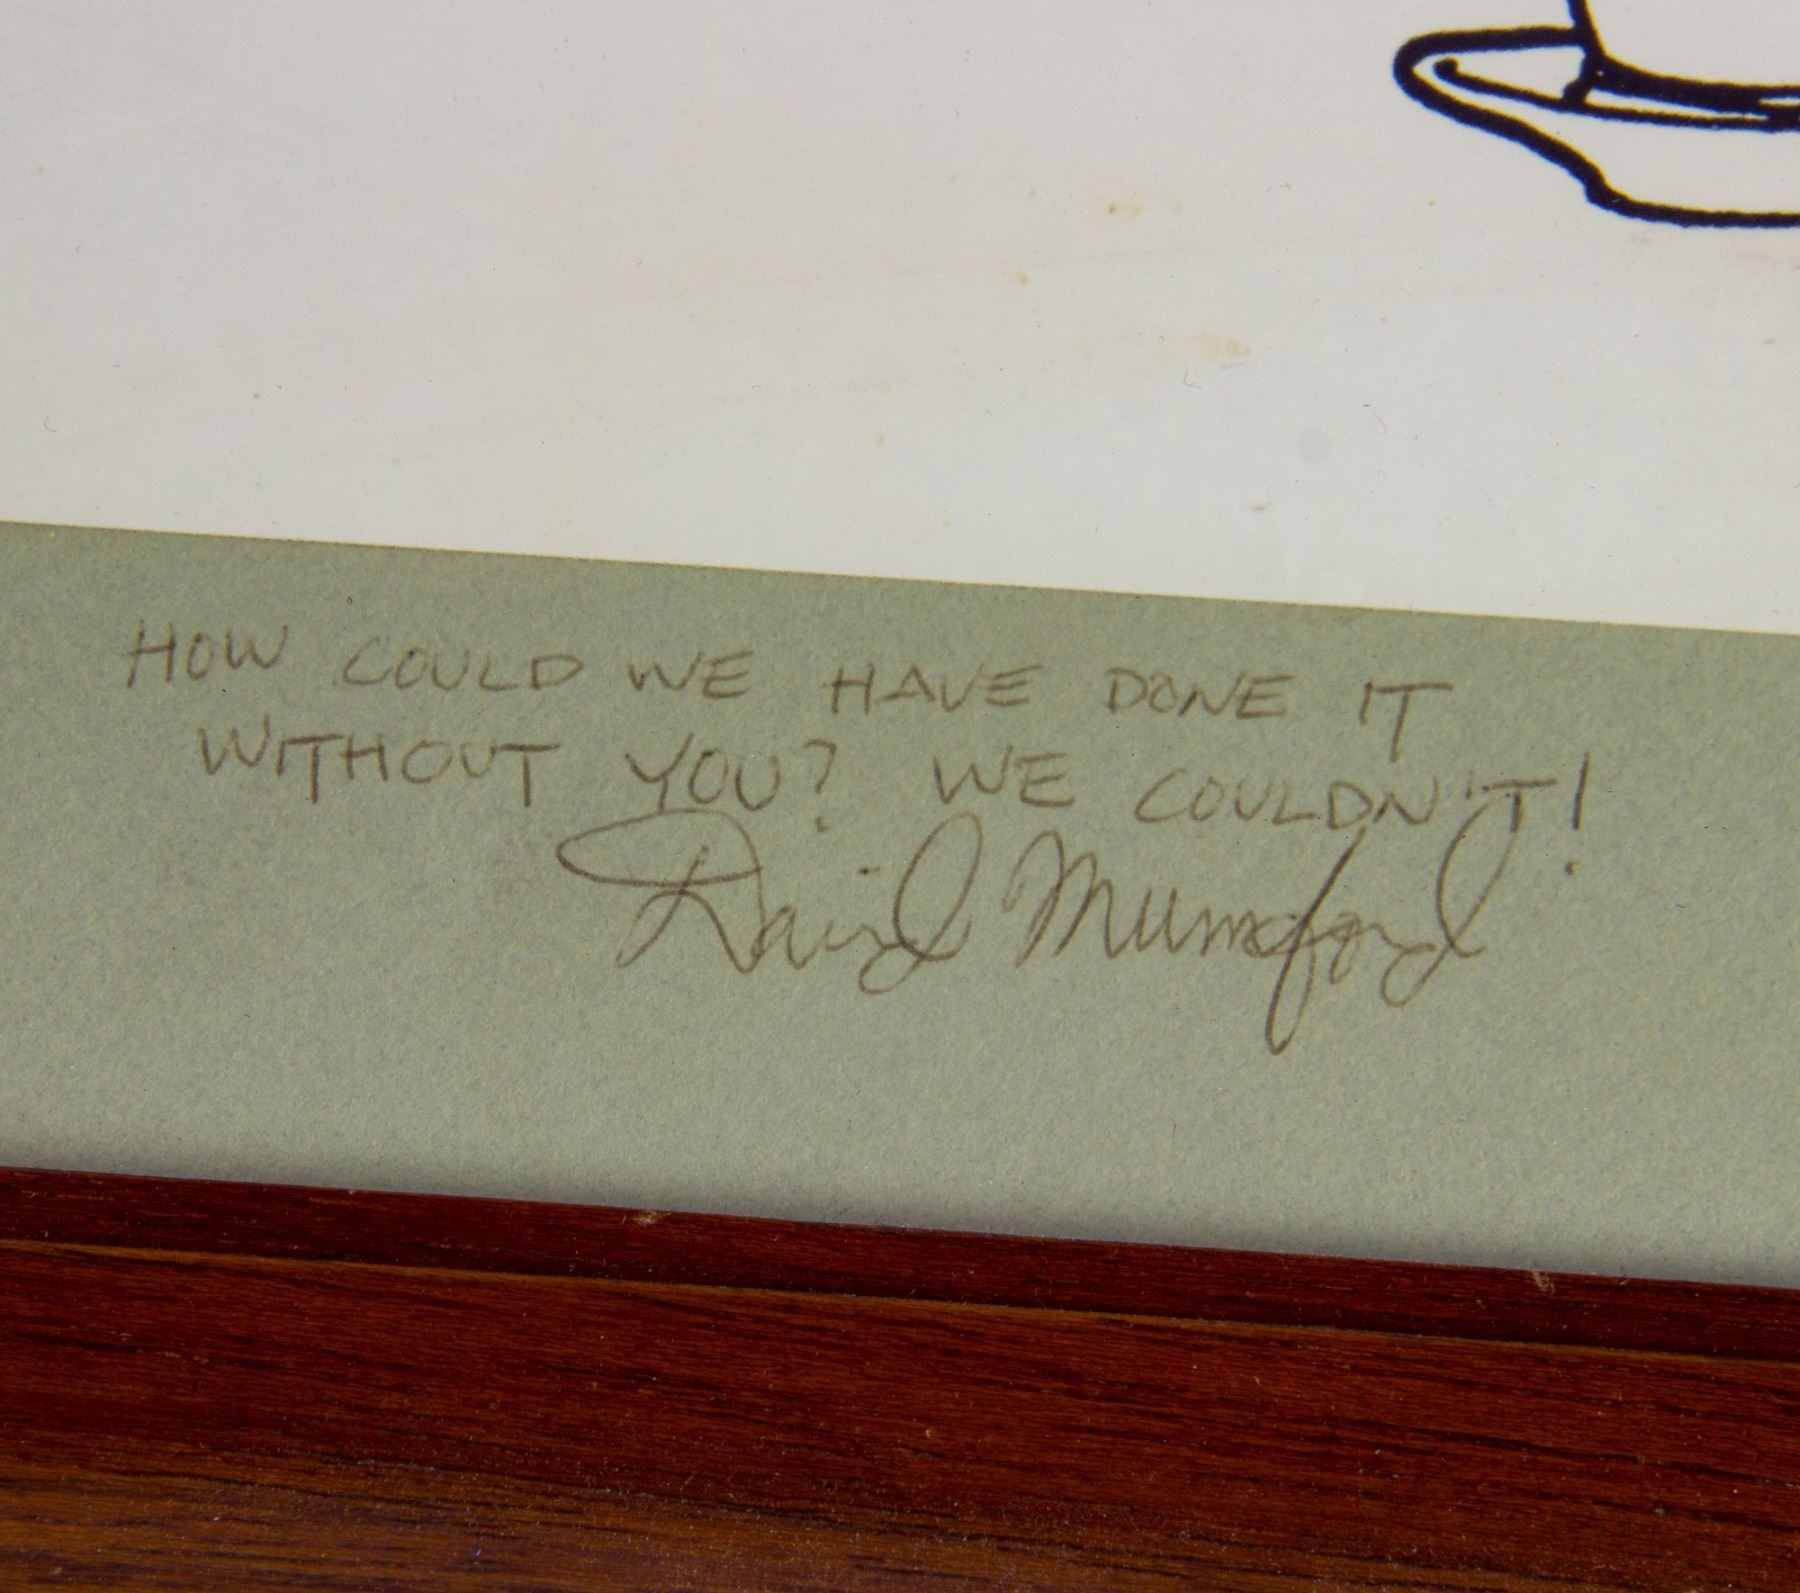 HOW COULD WE HAVE DONE IT
WITHOUT YOU? WE COULDN'T!
David Mumford